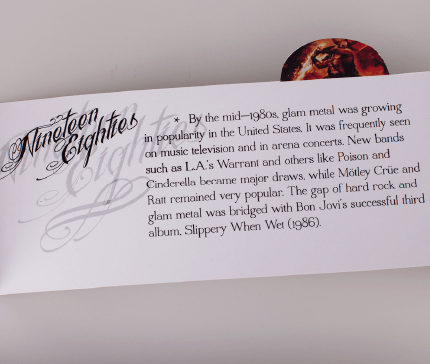 Nineteen
Eighties
* By the mid-1980s, glam metal was growing
in popularity in the United States. It was frequently seen
on music television and in arena concerts. New bands
such as L.A.'s Warrant and others like Poison and
Cinderella became major draws, while Mötley Crüe and
Ratt remained very popular. The gap of hard rock and
glam metal was bridged with Bon Jovi's successful third
album, Slippery When Wet (1986).